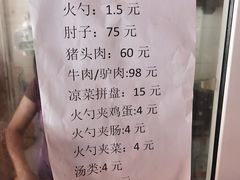 火勺：1.5 元
肘子：75 元
猪头肉：60 元
牛肉/驴肉:98 元
凉菜拼盘：15 元
火勺夹鸡蛋:4 元
火勺夹肠:4 元
火勺夹菜：4 元
汤类:4 元